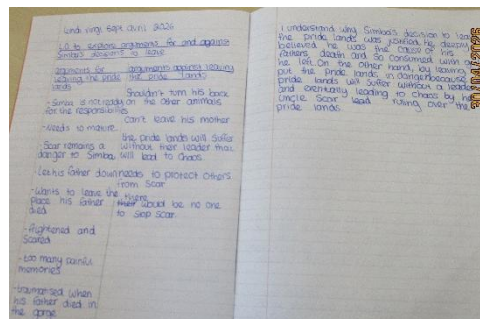 lundi vingt sept avril 2026
LO to explore arguments for and against
Simba's decisions to leave
arguments for leaving the pride lands
arguments against leaving the pride lands
- Simba is not ready for the responsibility
- Needs to mature.
- Scar remains a danger to Simba
- Let his father down
- Wants to leave the place his father died
- frightened and scared
- too many painful memories
- traumatised when his father died in the gorge
Shouldn't torn his back on the other animals
Can't leave his mother
the pride lands will suffer without their leader that will lead to chaos.
needs to protect others from Scar
there would be no one to stop Scar.
I understand why Simba's decision to leave
the pride lands was justified he deeply
believed he was the cause of his
fathers death and so consumed with
he left. On the other hand, you leaving
put the pride lands in danger because
pride lands will suffer without a leader
and eventually leading to chaos by he
Uncle Scar lead ruling over the
pride lands.